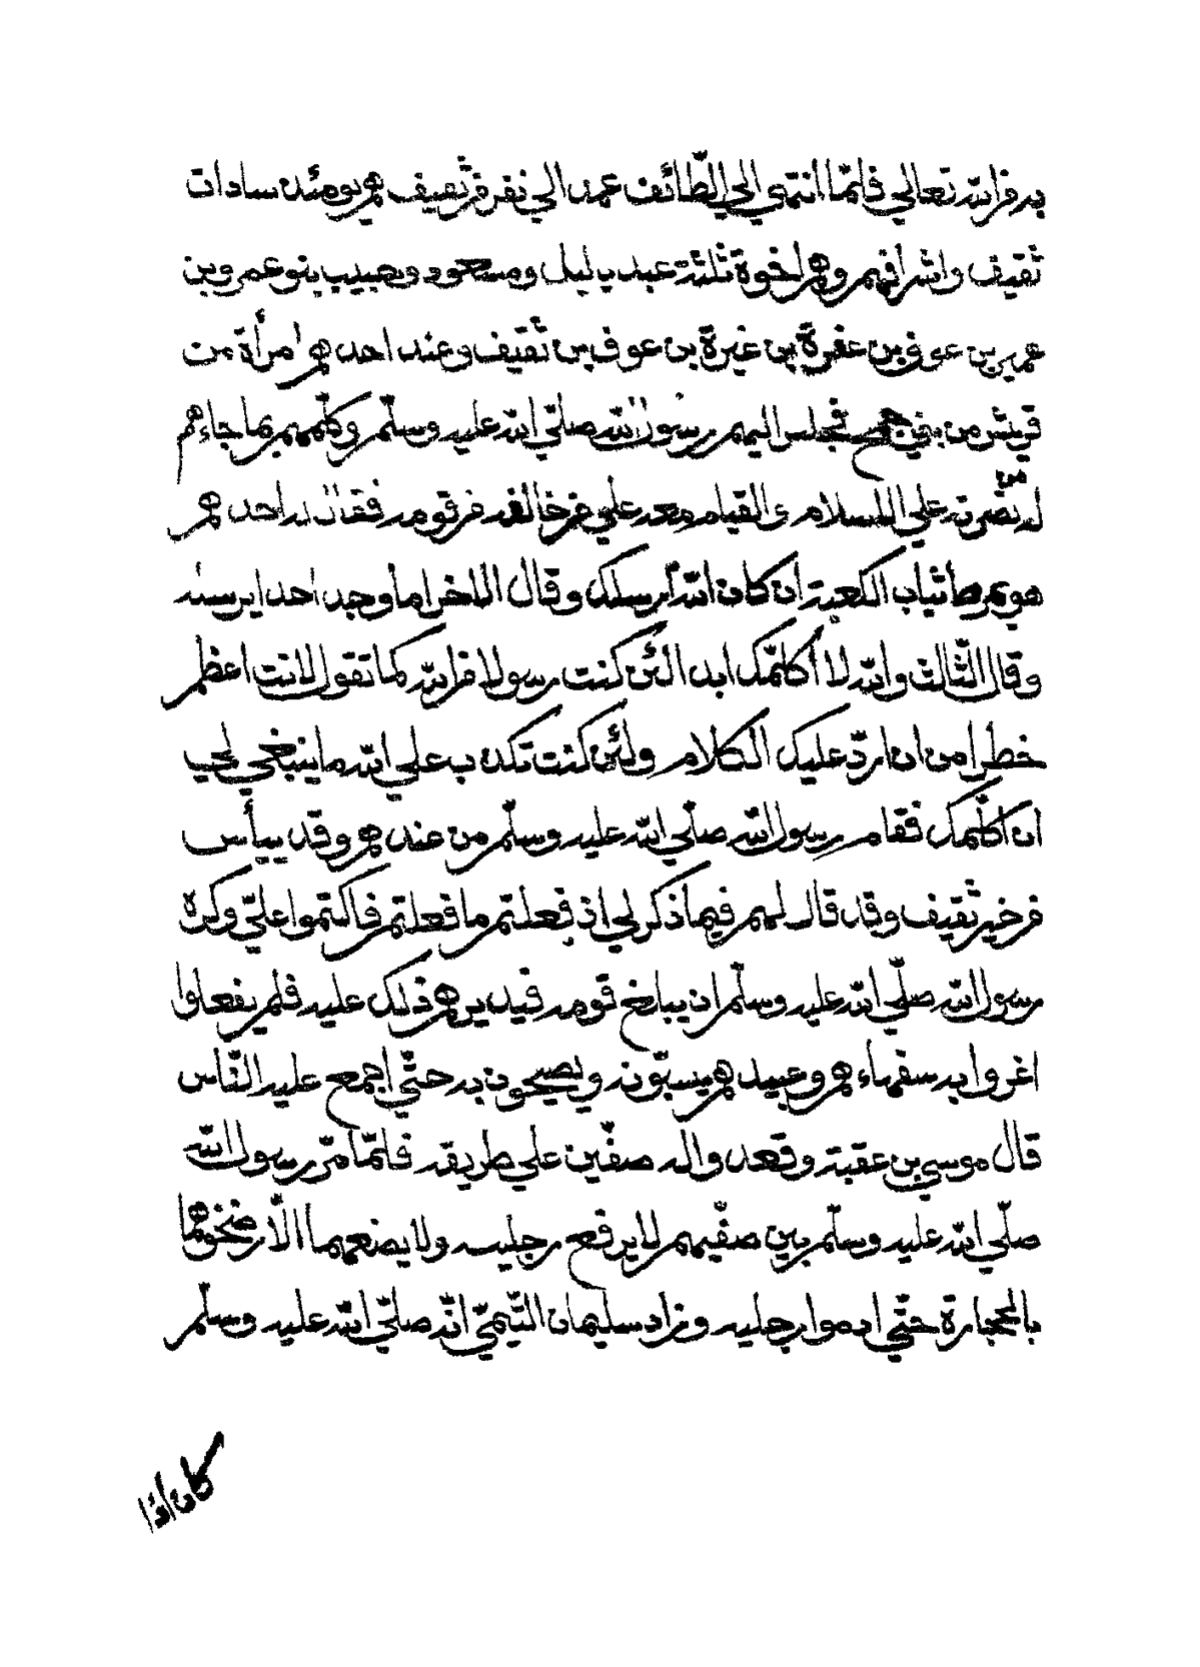 به من الله تعالي فلمّا انتهي الي الطّائف عمد الي نفر من ثقيف هم يومئد سادات
ثقيف واشرافهم وهم اخوة ثلثة عبد ياليل ومسعود وحبيب بنو عمرو بن
عمير بن عوف بن عقرة بن غيرة بن عوف بن ثقيف وعند احدهم امرأة من
قريش من بني جمح فجلس اليهم رسول الله صلّي الله عليه وسلّم وكلّمهم بما جاءهم
له من نصرته علي الاسلام والقيام معه علي من خالفه من قومه فقال له احدهم
هو يمرط ثياب الكعبة ان كان الله ارسلك وقال الاخر اما وجد احدا يرسله
وقال الثّالث والله لا اكلّمك ابدا لئن كنت رسولا من الله كما تقول لانت اعظم
خطرا من ان اردّ عليك الكلام ولئن كنت تكذب علي الله ما ينبغي لي
ان اكلّمك فقام رسول الله صلّي الله عليه وسلّم من عندهم وقد ييأس
من خير ثقيف وقد قال لهم فيما ذكر لي اذ فعلتم ما فعلتم فاكتموا عليّ وكره
رسول الله صلّي الله عليه وسلّم ان يبلغ قومه فيديرهم ذلك عليه فلم يفعلوا
اغروا به سفهاءهم وعبيدهم يسبّونه ويصيحون به حتّي اجمع عليه النّاس
قال موسي بن عقبة وقعدوا له صفّين علي طريقه فلمّا مرّ رسول الله
صلّي الله عليه وسلّم بين صفّيهم لا يرفع رجليه ولا يضعهما الّا رضخوهما
بالحجارة حتّي ادموا رجليه وزاد سليمان التّيميّ انّه صلّي الله عليه وسلّم
كان اذا